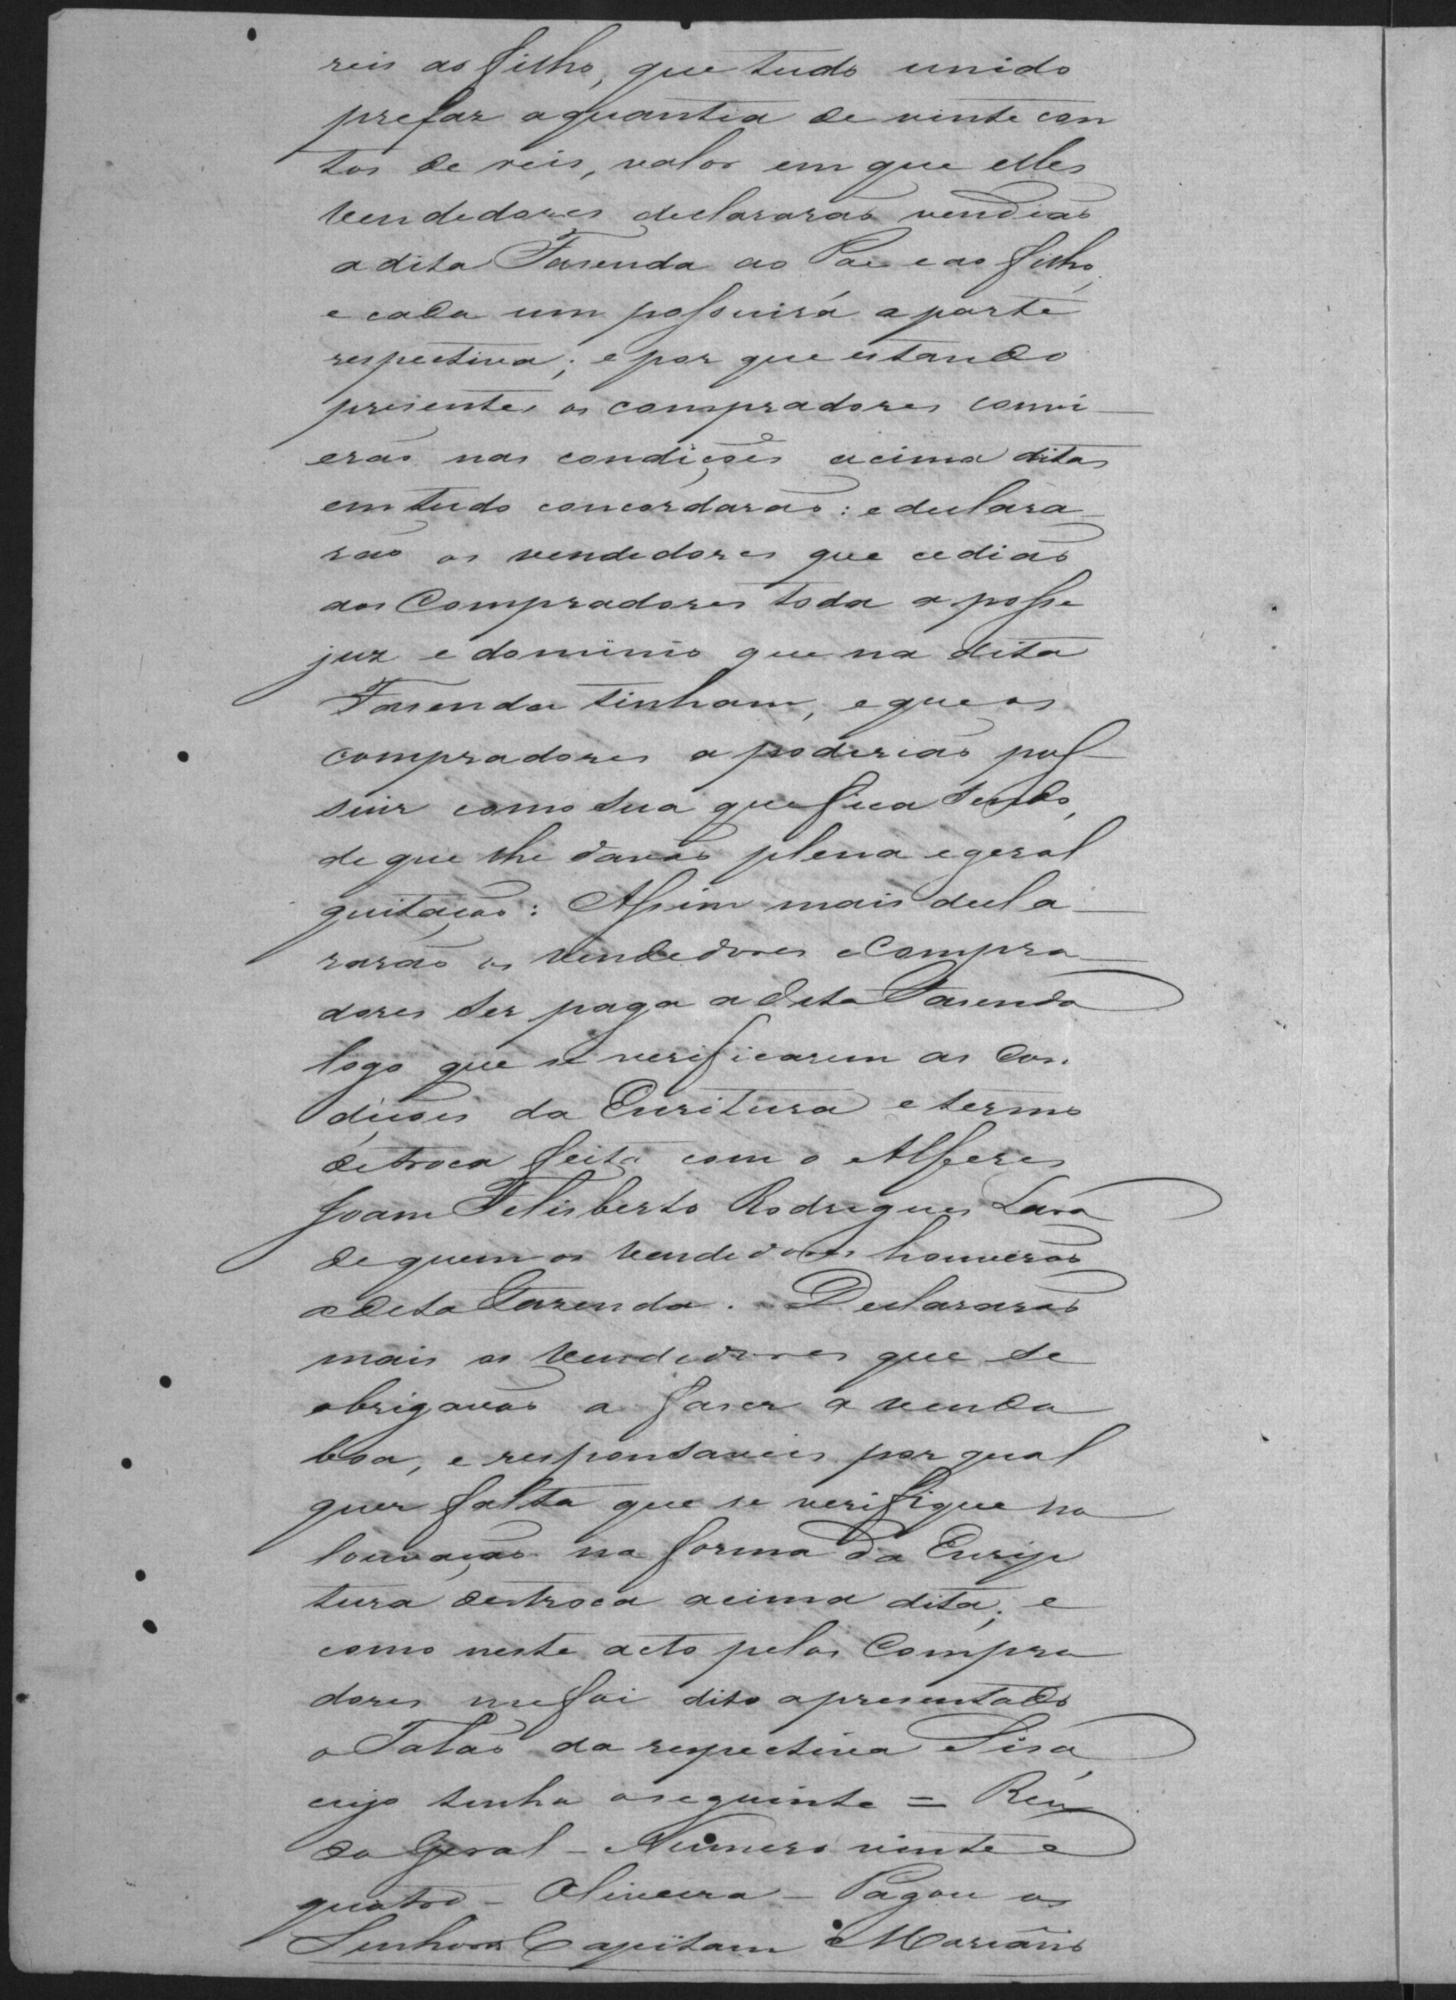 reis ao filho, que tudo unido
prefaz a quantia de vinte con
tos de reis, valor em que elles
vendedores declararão vendião
a dita Fasenda ao Pae e ao filho,
e cada um possuirá a parte
respectiva; e por que estando
presentes os compradores convi-
erão nas condições acima ditas
em tudo concordarão: e declara
rão os vendedores que cedião
aos Compradores toda a posse
juz e dominio que na dita
Fasenda tinham, e que os
compradores a poderião pos-
suir como sua que fica sendo,
de que lhe davão plena e geral
quitação: Assim mais decla-
rarão os vendedores e Compra-
dores ser paga a dita Fasenda
logo que se verificarem as Con.
dições da Escritura e termo
de troca feita com o Alferes
Joam Felisberto Rodrigues Lara
de quem os vendedores houverão
a dita Fazenda. Declararão
mais os vendedores que se
obrigavão a faser a venda
boa, e responsaveis por qual
quer falta que se verifique na
louvação na forma da Escrip
tura destroca acima dita; e
como neste acto pelos Compra
dores me foi dito apresentado
o Talão da respectiva Sisa,
cujo tenho o seguinte = Ren
da Geral - Numero vinte e
quatro - Oliveira - Pagou os
Senhores Capitam Mariano